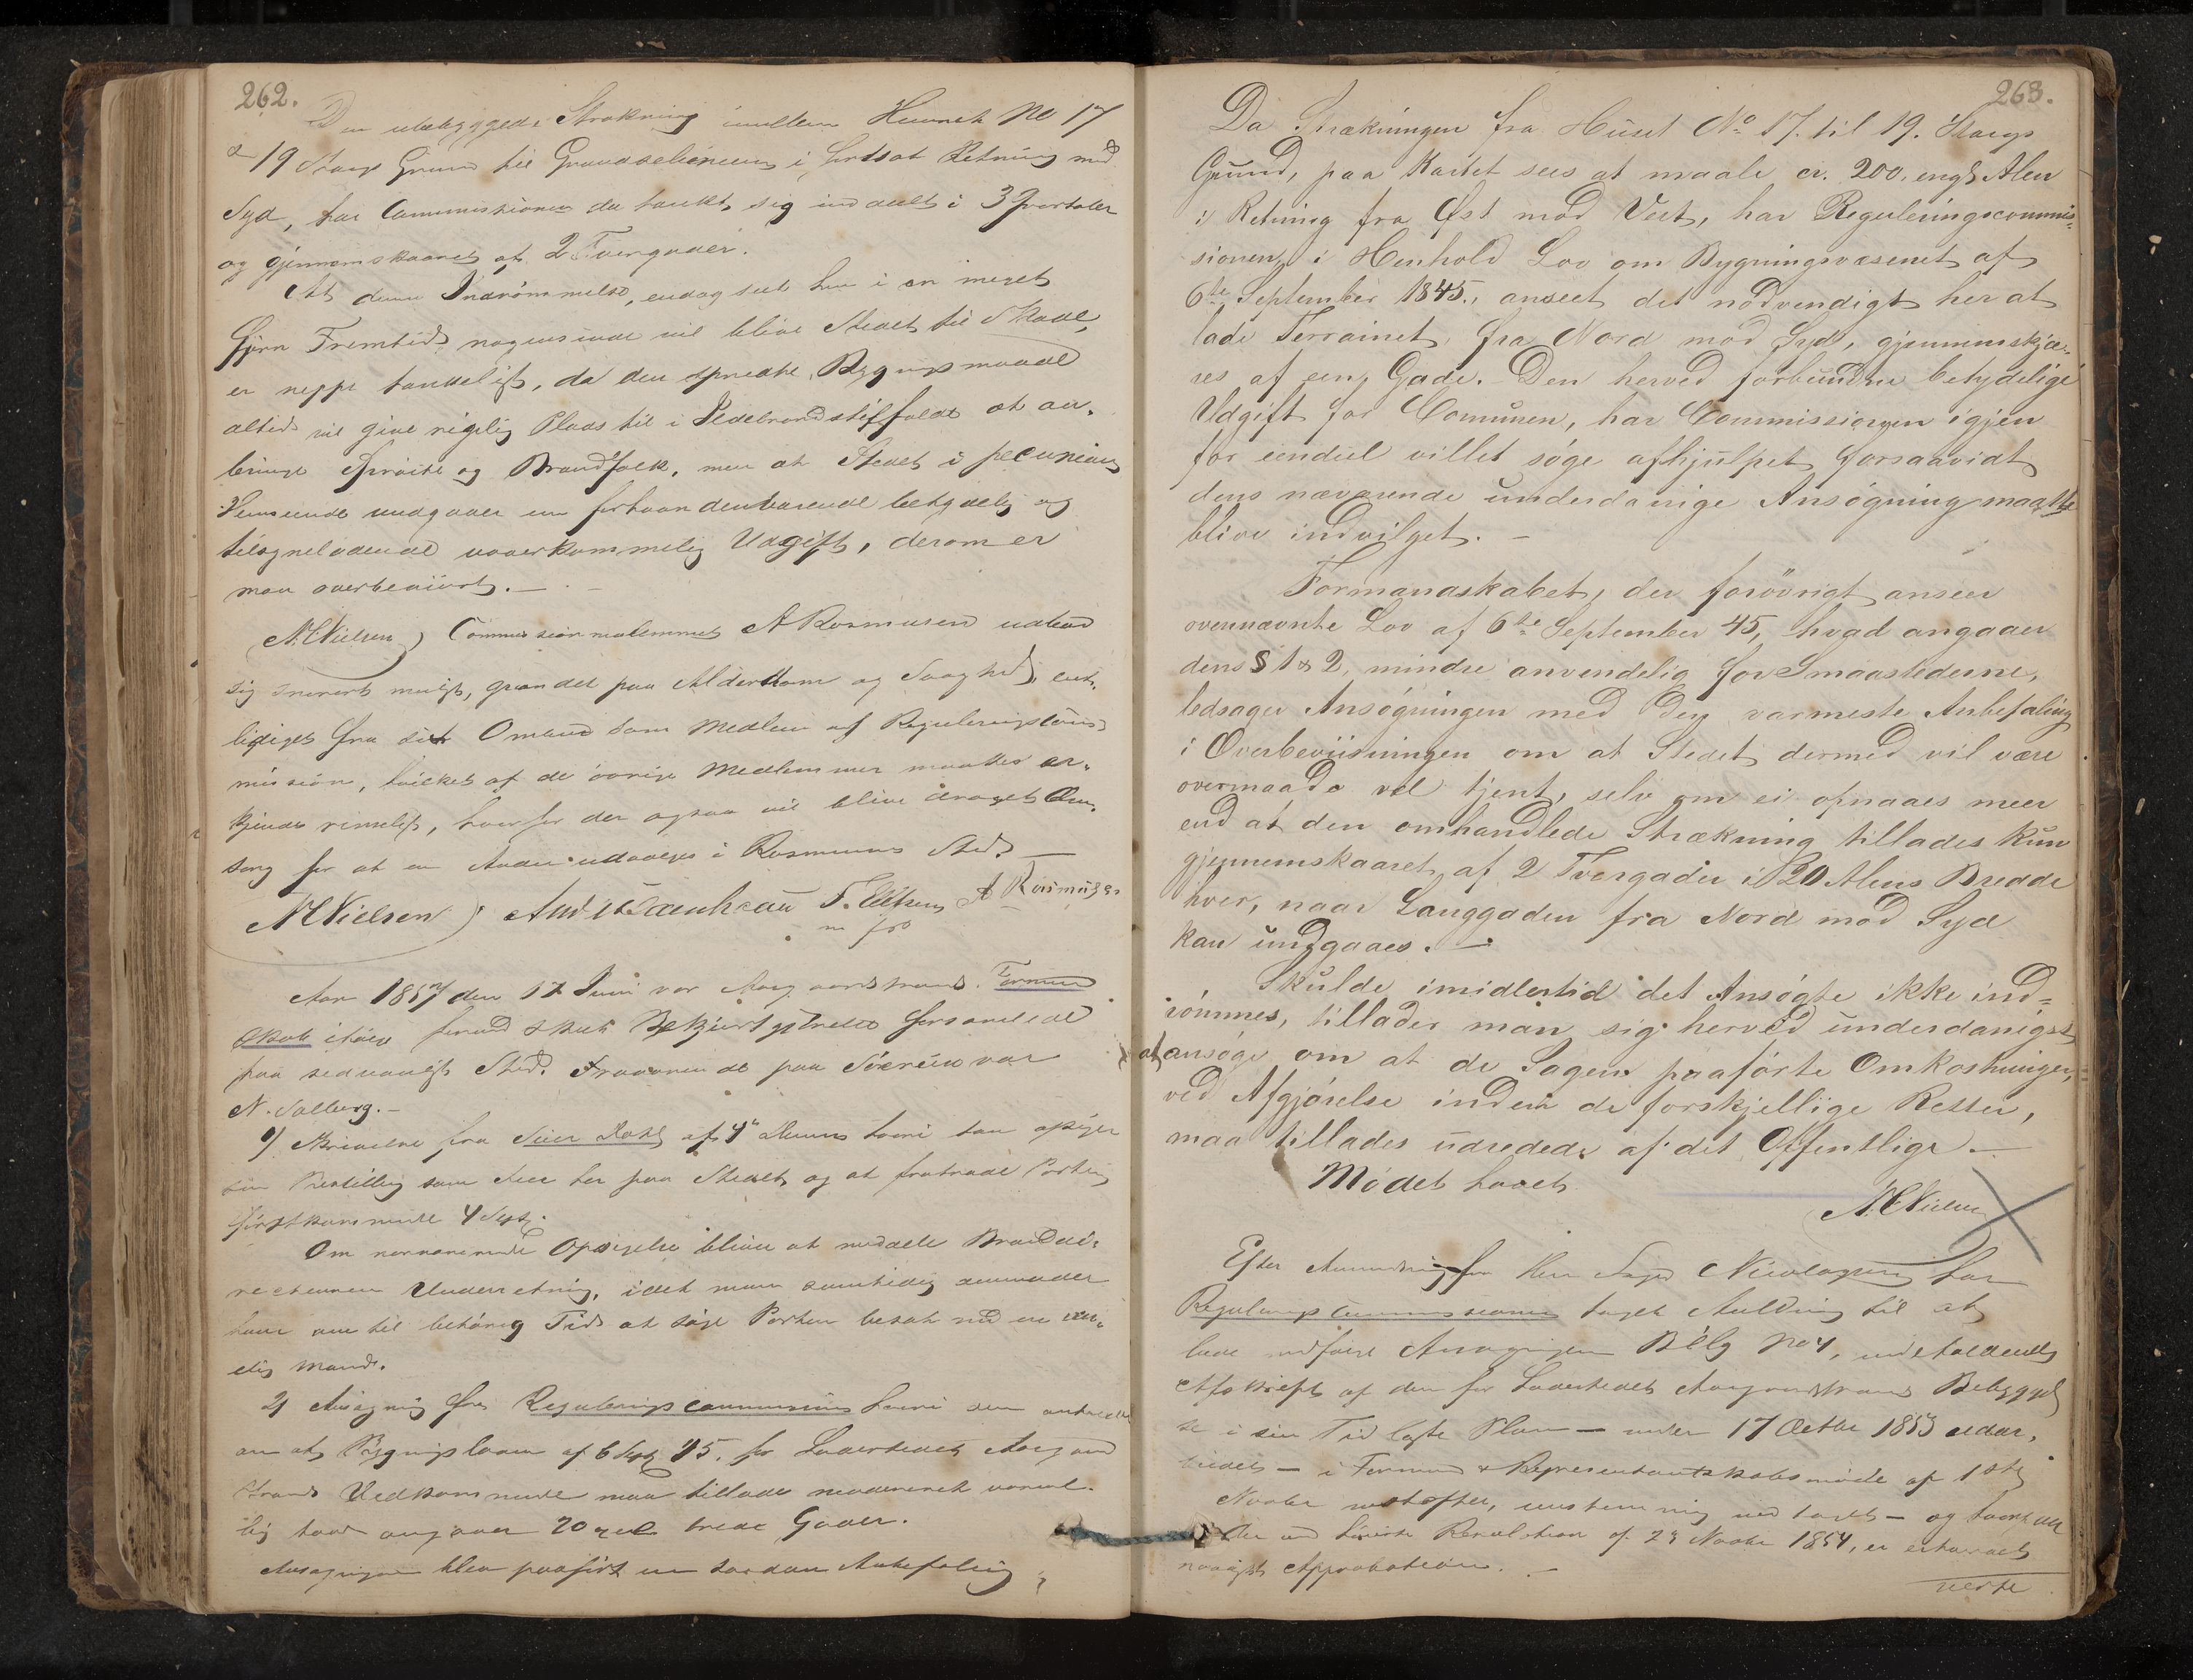 262.
Den ubebyggede Strækning imellem Huuset No 17
19 Storgs Grund til Grændselinien i fortsat Retning mod
Syd, har Commissionen da tænkt sig inddeelt i 3 Qvartaler
og gjennemskaaret af 2 Tvergader.
At denne Indrømmelse, endog seet hen i en meget
fjern Fremtid nogensinde vil blive Stedet til Skade,
er neppe tænkeligt, da den spredte Bygningsmaade
altid vil give rigelig Plads til i Ildebrandstilfælde at an-
bringe Sprøite og Brandfolk, men at Stedet i pecuniair
Henseende undgaaer en forhaandenværende betydelig og
tilsyneladende uoverkommelig Udgift, derom er
man overbeviist. —
NCNielsen Commissionsmedlemmet A Rasmusen udbad
sig snarest muligt, grundet paa Alderdom og Svaghed, ent-
lediget fra sit Ombud som Medlem af Reguleringscom-
mission, hvilket af de øvrige Medlemmer maatte er-
kjendes rimeligt, hvorfor der ogsaa vil blive draget Om-
sorg for at en Anden udvælges i Rasmusens Sted. —
NCNielsen T. Ellefsen A Rasmusen
m f p
Aar 1857 den 17 Juni var Aasgaardstrands Formand
skab itøvr forud skeet Bekjendtgjørelse forsamlede
paa sedvanligt Sted. Fraværende paa Søreise var
N. Solberg. —
1/ Skrivelse fra af 4de Dennes hvori han opsiger
sin Bestilling som her paa Stedet og at fratræde Posten
førstkommende 4 Sept.
Om nærværende Opsigelse bliver at meddele Branddi-
recteuren Underretning, idet man samtidig anmoder
ham om til behørig Tid at søge Posten besat med en
Mand.
2/ Ansøgning fra Reguleringscommissionen hvori den anholder
om at Bygningsloven af 6 Sept 45. for Ladestedet Aasgaard
strands Vedkommende maa tillades modereret
lig hvad angaaer 20 Al brede Gader.
Ansøgningen blev paaført en saadan Anbefaling
263.
Da Strækningen fra Huset No 17. til 19. Storgs
Grund, paa Kartet sees at maale cr. 200, engl Alen
i Retning fra Øst mod Vest, har Reguleringscommis-
sionen, i Henhold Lov om Bygningsvæsenet af
6te September 1845., anseet det nødvendigt her at
lade Terrainet, fra Nord mod Syd, gjennemskjæ-
res af een Gade. Den herved forbundne betydelige
Udgift for Comunen, har Commissionen igjen
for eendeel villet søge afhjulpet forsaavidt
dens nærværende underdanige Ansøgning maatte
blive indvilget. —
Formandskabet, der forøvrigt anseer
ovennævnte Lov af 6te September 45, hvad angaaer
dens § 1 & 2, mindre anvendelig for Smaastederne,
ledsager Ansøgningen med den varmeste Anbefaling
i Overbeviisningen om at Stedet dermed vil være
overmaade vel tjent, selv om ei opnaaes meer
end at den omhandlede Strækning tillades kun
gjennemskaaret af 2 Tvergader i 20 Alens Bredde
hver, naar Langgaden fra Nord mod Syd
kan undgaaes. —
Skulde imidlertid det Ansøgte ikke ind-
rømmes, tillader man sig herved underdanigst
at ansøge om at de Sagen paaførte Omkostninger,
ved Afgjørelse inden de forskjellige Retter,
maa tillades udredede af det Offentlige. —
Mødet hævet
NCNielsen
Efter Anmodning fra Herr Nicolaysen har
Reguleringscommissionen taget Anledning til at
lade Ansøgningen Bilag No 4, indeholdende
Afskrift af den for Ladestedet Aasgaardstrands Bebyggel
se i sin Tid lagte Plan — under 17 Octbr 1853 udar-
beidet — i Formand & Repræsentantskabsmøde af 1ste
Novbr næstefter, eenstemmig vedtaget — og hvorpaa
der ved høieste Resolution af 23 Novbr 1854, er erhvervet
naadigst Approbation. —
verte